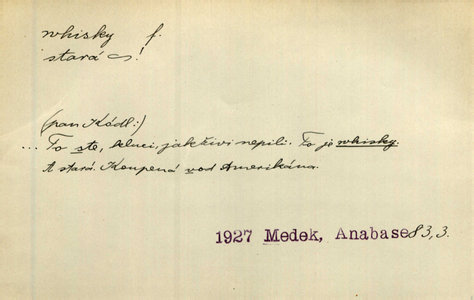 whisky f.
stará ~!
(pan Kódl:)
... To ste, kluci, jakživi nepili. To je whisky.
A stará. Koupená vod Amerikána.
1927 Medek, Anabase 83,3.